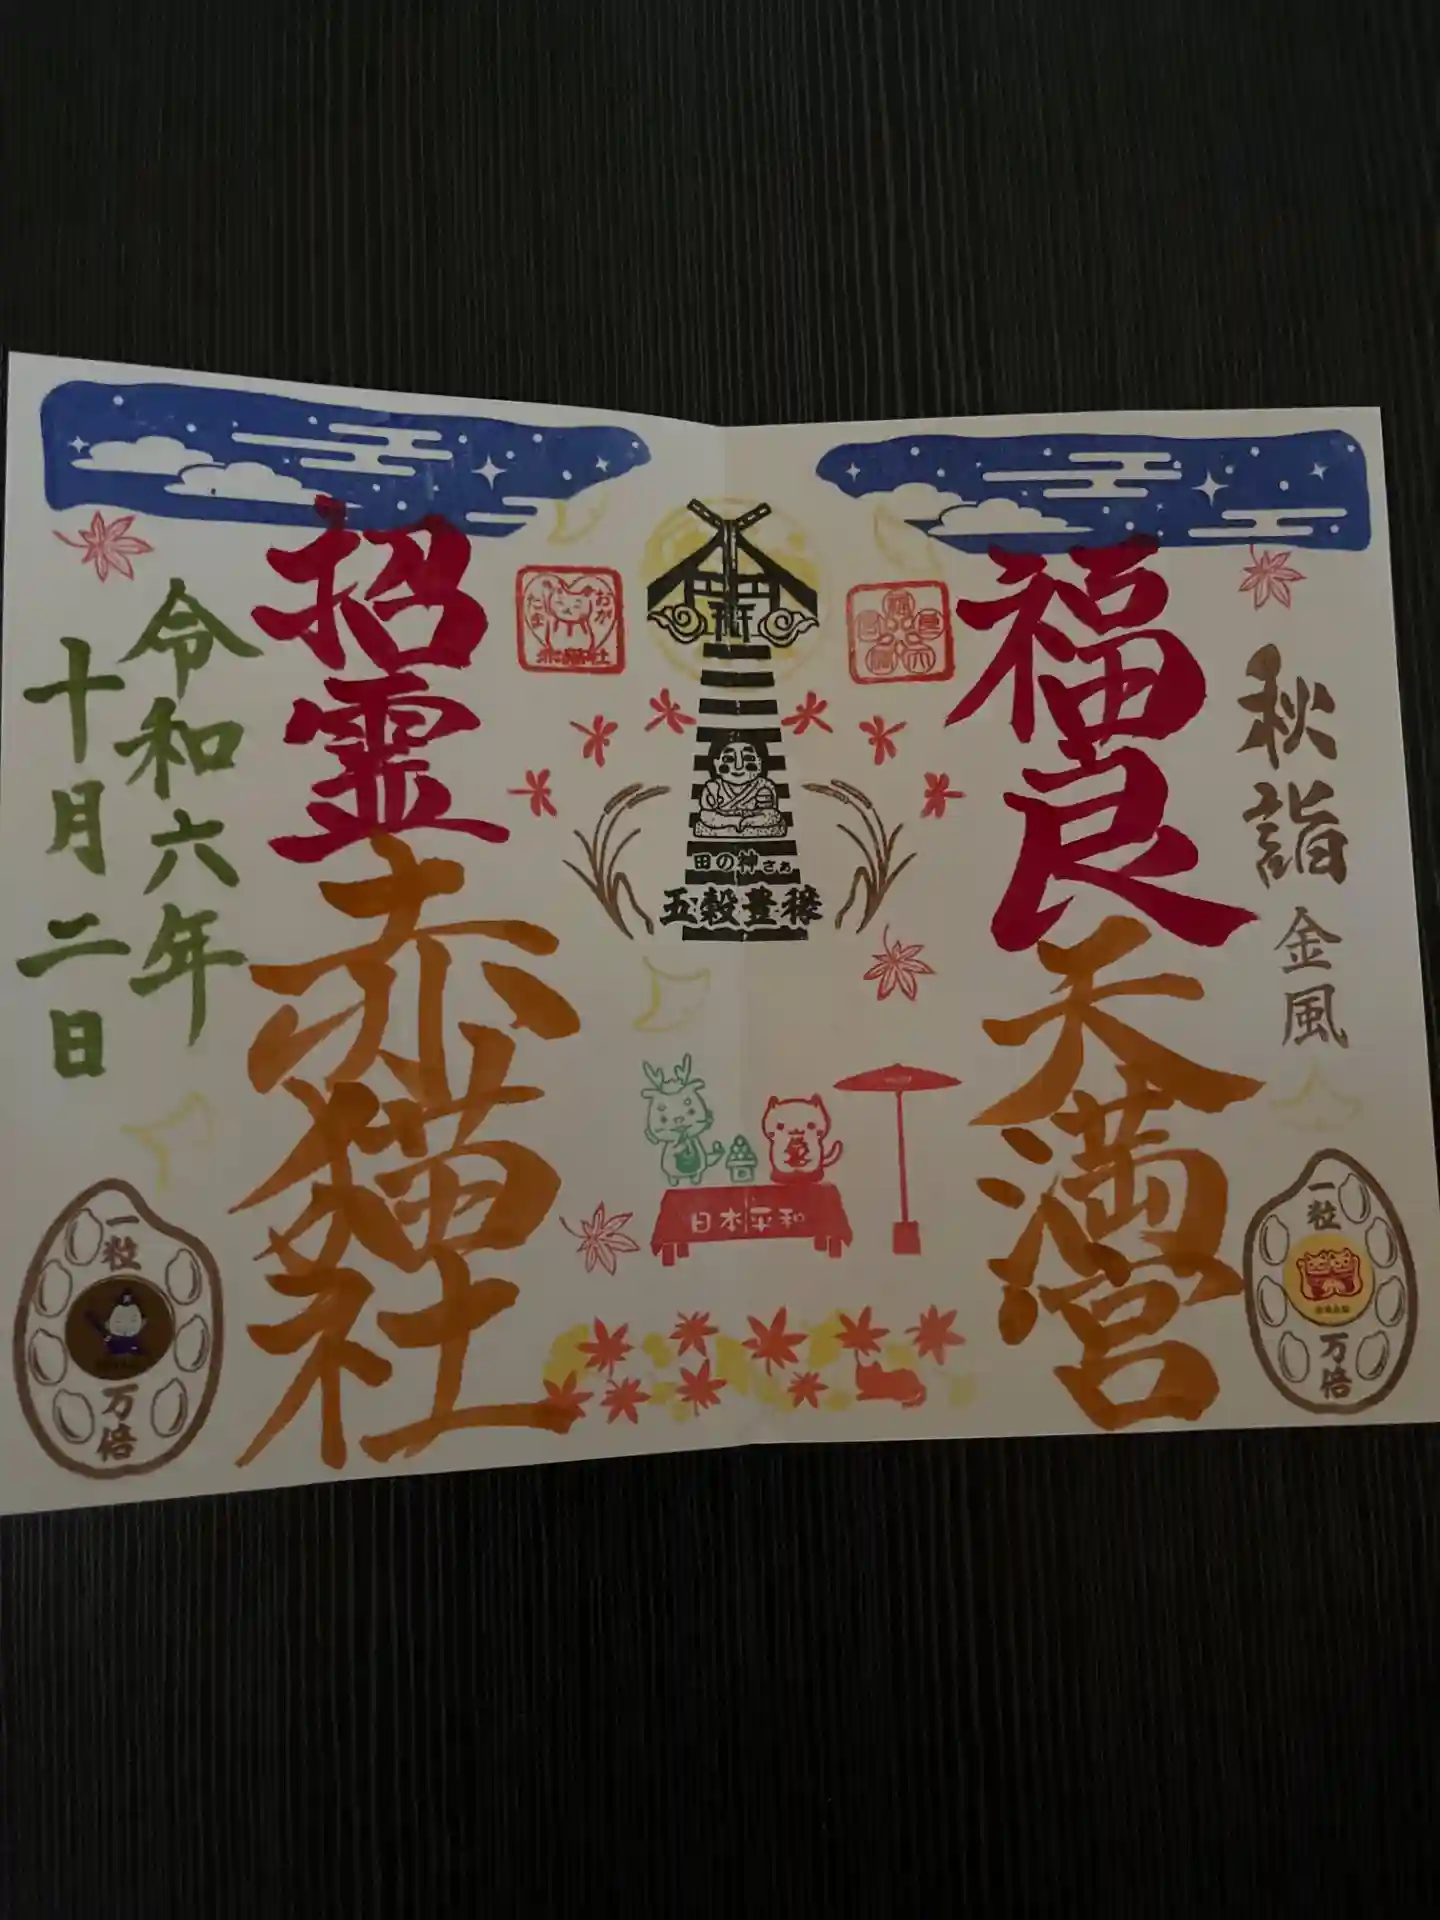 秋詣
金風
福良
天満宮
一粒
万倍
田の神さぁ
五穀豊穣
日本平和
おが
たま
赤猫社
招霊
赤猫社
令和六年
十月二日
一粒
万倍